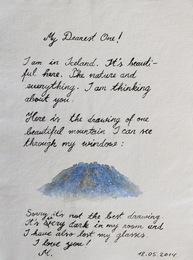 My Dearest One!
I am in Iceland. It's beauti-
ful here. The nature and
everything. I am thinking
about you.
Here is the drawing of one
beautiful mountain I can see
through my window:
Sorry, it's not the best drawing.
It's very dark in my room and
I have also lost my glasses.
I love you!
M.
18.05.2014